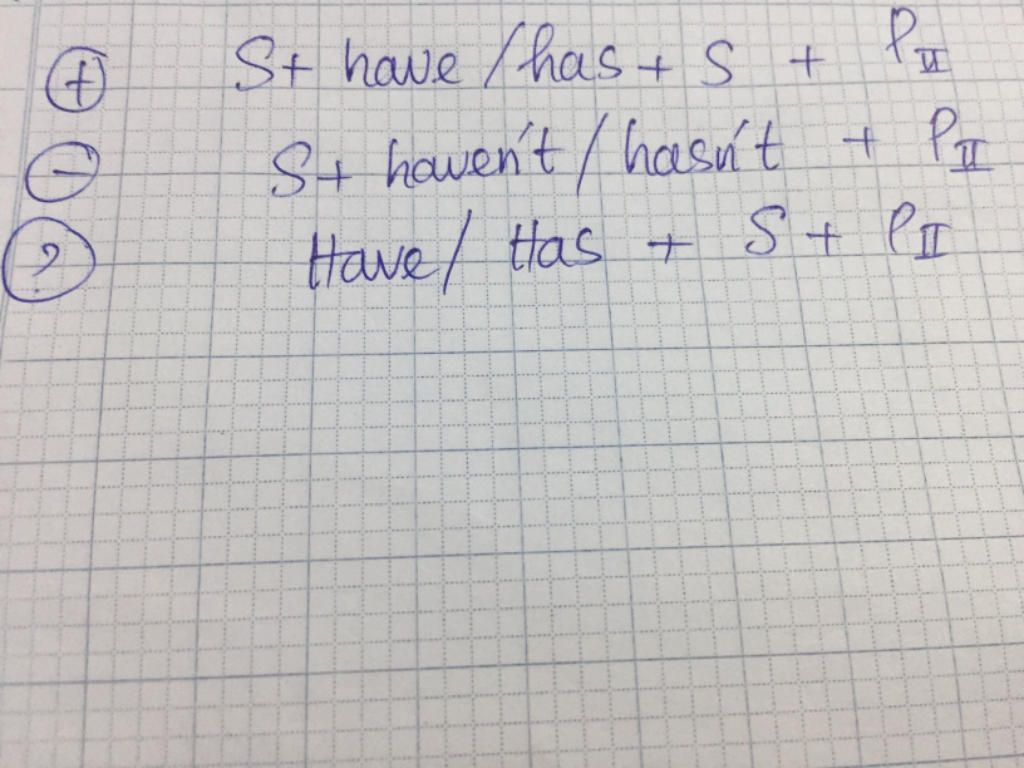 (+) S + have / has + S + PII
(-) S + haven't / hasn't + PII
(?) Have / Has + S + PII